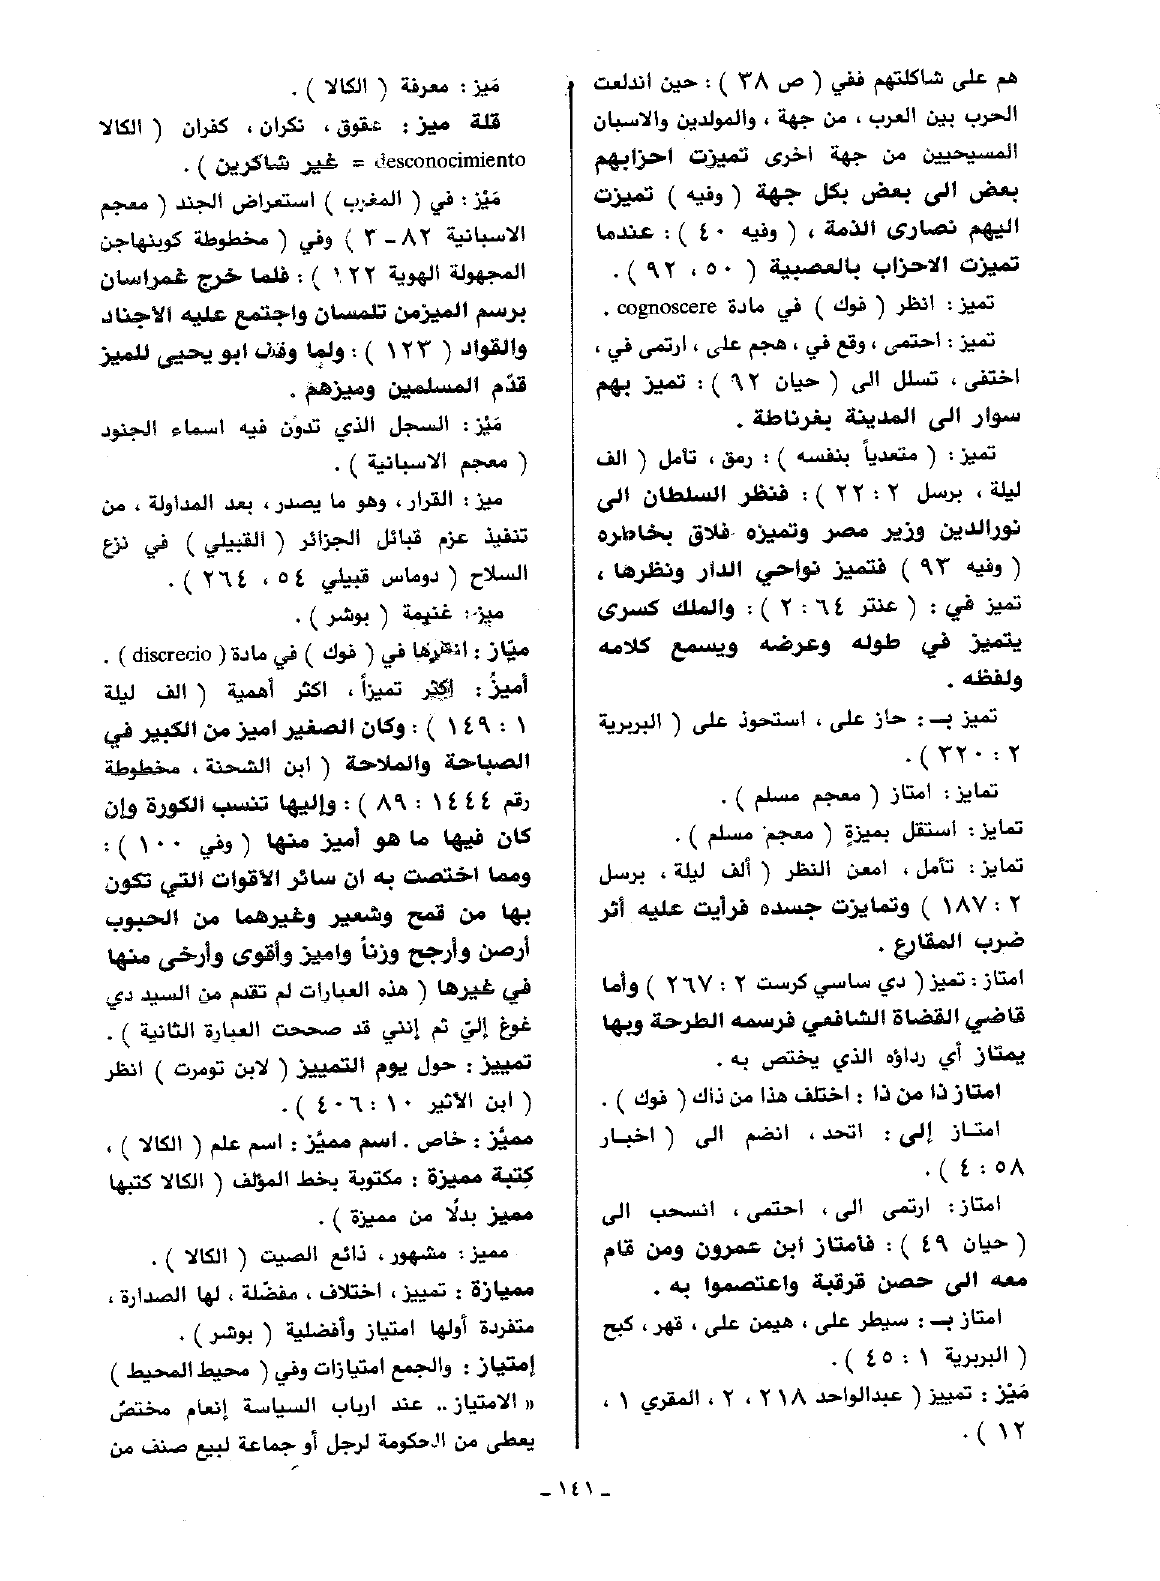 هم على شاكلتهم ففي ( ص ٣٨ ) : حين اندلعت
الحرب بين العرب ، من جهة ، والمولدين والاسبان
المسيحيين من جهة اخرى تميزت احزابهم
بعض الى بعض بكل جهة ( وفيه ) تميزت
اليهم نصارى الذمة ، ( وفيه ٤٠ ) : عندما
تميزت الاحزاب بالعصبية ( ٥٠ ، ٩٢ ) .
تميز : انظر ( فوك ) في مادة cognoscere .
تميز : احتمى ، وقع في ، هجم على ، ارتمى في ،
اختفى ، تسلل الى ( حيان ٦٢ ) : تميز بهم
سوار الى المدينة بغرناطة .
تميز : ( متعدياً بنفسه ) : رمق ، تأمل ( الف
ليلة ، برسل ٢ : ٢٢ ) : فنظر السلطان الى
نورالدين وزير مصر وتميزه فلاق بخاطره
( وفيه ٩٣ ) فتميز نواحي الدار ونظرها ،
تميز في : ( عنتر ٦٤ : ٢ ) : والملك كسرى
يتميز في طوله وعرضه ويسمع كلامه
ولفظه .
تميز بـ : حاز على ، استحوذ على ( البربرية
٢ : ٣٢٠ ) .
تمايز : امتاز ( معجم مسلم ) .
تمايز : استقل بميزةٍ ( معجم مسلم ) .
تمايز : تأمل ، امعن النظر ( ألف ليلة ، برسل
٢ : ١٨٧ ) وتمايزت جسده فرأيت عليه أثر
ضرب المقارع .
امتاز : تميز ( دي ساسي كرست ٢ : ٢٦٧ ) وأما
قاضي القضاة الشافعي فرسمه الطرحة وبها
يمتاز أي رداؤه الذي يختص به .
امتاز ذا من ذا : اختلف هذا من ذاك ( فوك ) .
امتـاز إلى : اتحد ، انضم الى ( اخبار
٥٨ : ٤ ) .
امتاز : ارتمى الى ، احتمى ، انسحب الى
( حيان ٤٩ ) : فامتاز ابن عمرون ومن قام
معه الى حصن قرقبة واعتصموا به .
امتاز بـ : سيطر على ، هيمن على ، قهر ، كبح
( البربرية ١ : ٤٥ ) .
مَيْز : تمييز ( عبدالواحد ٢١٨ ، ٢ ، المقري ١ ،
١٢ ) .
مَيز : معرفة ( الكالا ) .
قلة ميز : عقوق ، نكران ، كفران ( الكالا
desconocimiento = غير شاكرين ) .
مَيْز : في ( المغرب ) استعراض الجند ( معجم
الاسبانية ٨٢ - ٣ ) وفي ( مخطوطة كوبنهاجن
المجهولة الهوية ١٢٢ ) : فلما خرج غمراسان
برسم الميزمن تلمسان واجتمع عليه الأجناد
والقواد ( ١٢٣ ) : ولما وقف ابو يحيى للميز
قدّم المسلمين وميزهم .
مَيْز : السجل الذي تدوّن فيه اسماء الجنود
( معجم الاسبانية ) .
ميز : القرار ، وهو ما يصدر ، بعد المداولة ، من
تنفيذ عزم قبائل الجزائر ( القبيلي ) في نزع
السلاح ( دوماس قبيلي ٥٤ ، ٢٦٤ ) .
ميز : غنيمة ( بوشر ) .
ميّاز : انظرها في ( فوك ) في مادة ( discrecio ) .
أميزُ : أكثر تميزاً ، اكثر أهمية ( الف ليلة
١ : ١٤٩ ) : وكان الصغير اميز من الكبير في
الصباحة والملاحة ( ابن الشحنة ، مخطوطة
رقم ١٤٤٤ : ٨٩ ) : وإليها تنسب الكورة وإن
كان فيها ما هو أميز منها ( وفي ١٠٠ ) :
ومما اختصت به ان سائر الأقوات التي تكون
بها من قمح وشعير وغيرهما من الحبوب
أرصن وأرجح وزناً واميز وأقوى وأرخى منها
في غيرها ( هذه العبارات لم تقدم من السيد دي
غوغ إليّ ثم إنني قد صححت العبارة الثانية ) .
تمييز : حول يوم التمييز ( لابن تومرت ) انظر
( ابن الأثير ١٠ : ٤٠٦ ) .
مميَّز : خاص . اسم مميَّز : اسم علم ( الكالا ) ،
كتبة مميزة : مكتوبة بخط المؤلف ( الكالا كتبها
مميز بدلًا من مميزة ) .
مميز : مشهور ، ذائع الصيت ( الكالا ) .
مميازة : تمييز ، اختلاف ، مفضّلة ، لها الصدارة ،
متفردة أولها امتياز وأفضلية ( بوشر ) .
إمتياز : والجمع امتيازات وفي ( محيط المحيط )
« الامتياز .. عند ارباب السياسة إنعام مختصّ
يعطى من الحكومة لرجل أو جماعة لبيع صنف من
ـ ١٤١ ـ